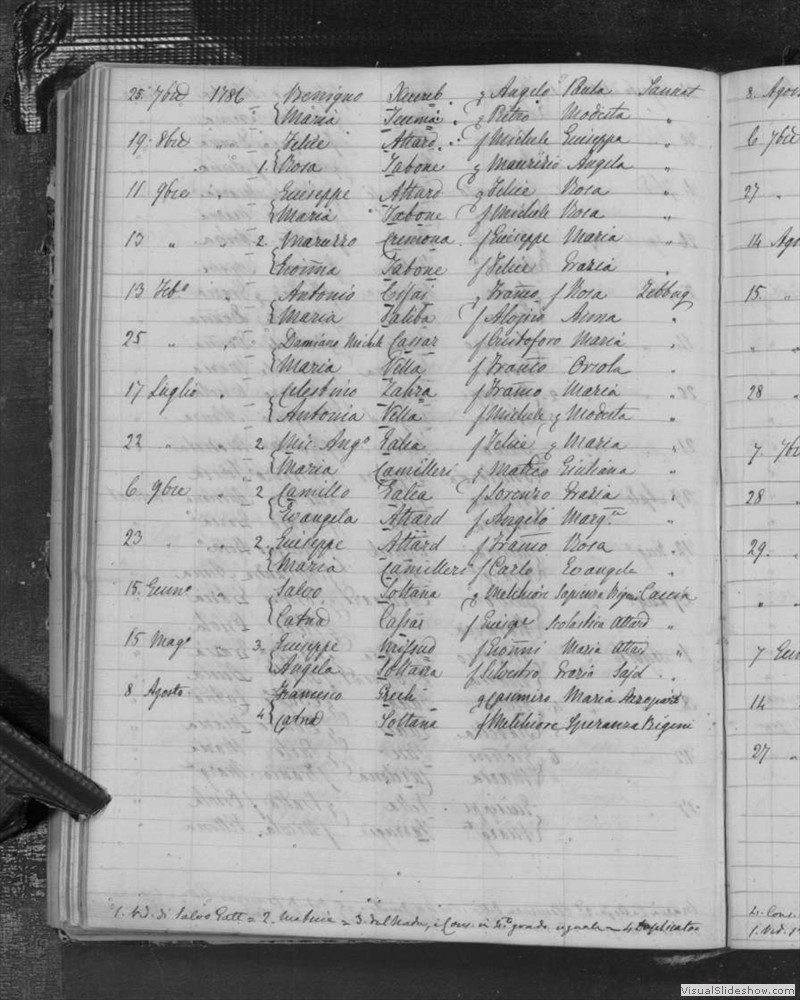 25 7bre 1786 Benigno Xuereb g Angelo Paula Sannat
Maria g Pietro Modesta "
19 8bre " Felice Attard f Michele Giuseppa "
1. Rosa Tabone g Maurizio Angela "
11 9bre " Giuseppe Attard g Felice Rosa "
Maria Tabone f Michele Rosa "
13 " 2. Maruzzo Cremona f Giuseppe Maria "
Gionna Tabone f Felice Grazia "
13 Feb° " Antonio g Franco f Rosa Zebbug
Maria Taliba f Alojsio Anna "
25 " " Damiano Michele Cassar f Cristoforo Maria "
Maria Vella f Franco Orsola "
17 Luglio " Celestino f Franco Maria "
Antonia Vella f Michele g Modesta "
22 " 2 Mic. Ang° Galea f Felice g Maria "
Maria Camilleri g Matteo Giuliana "
6 9bre " 2 Camillo Galea f Lorenzo Grazia "
Evangela Attard f Angelo Marg.ta "
23 " " 2. Giuseppe Attard f Franco Rosa "
Maria Camilleri f Carlo Evangela "
15 Genn° " Salvo Soltana g Melchior Sapienza Bigeni Caccia
Catna Cassar f Giuspe Scolastica Attard "
15 Mag° 3. Giuseppe Grisud f Gionni Maria Attard "
Angela Soltana f Silvestro Grazia Sajd "
8 Agosto Francesco Grech g Casimiro Maria
4 Catna Soltana f Melchiore Speranza Bigeni
1. Ved. di Salvo Gatt = 2. = 3. e Cons. in 4to grado uguale = 4 Duplicato
8. Agos
6. 7bre
27 "
14 Ago
15 "
" "
28 "
7. 7b
28 "
29. "
" "
7 Gen
14 "
27 "
4. Cons.
1. Ved.
VisualSlideshow.com